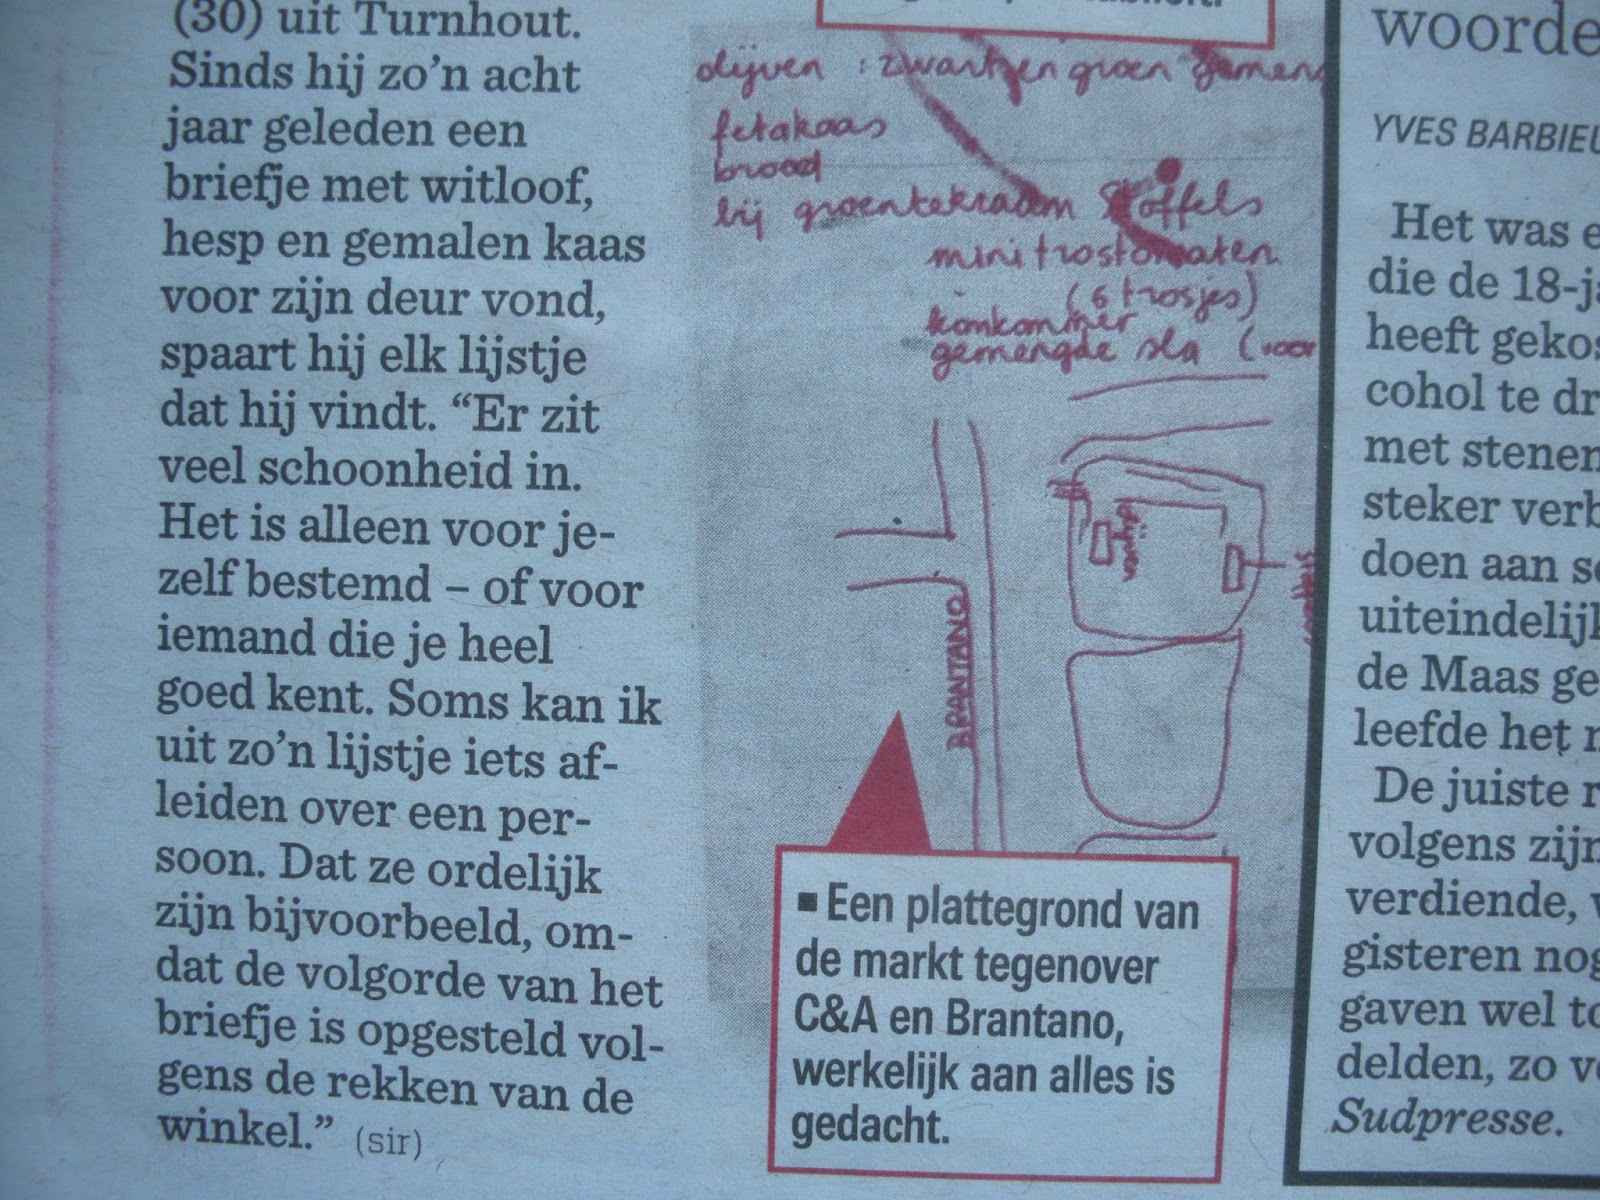 (30) uit Turnhout.
Sinds hij zo’n acht
jaar geleden een
briefje met witloof,
hesp en gemalen kaas
voor zijn deur vond,
spaart hij elk lijstje
dat hij vindt. “Er zit
veel schoonheid in.
Het is alleen voor je-
zelf bestemd – of voor
iemand die je heel
goed kent. Soms kan ik
uit zo’n lijstje iets af-
leiden over een per-
soon. Dat ze ordelijk
zijn bijvoorbeeld, om-
dat de volgorde van het
briefje is opgesteld vol-
gens de rekken van de
winkel.” (sir)
olijven : zwart en groen gemeng
fetakaas
brood
bij groentekraam Stoffels
mini trostomaten
(6 trosjes)
komkommer
gemengde sla (voor
olijven
BRANTANO
■ Een plattegrond van
de markt tegenover
C&A en Brantano,
werkelijk aan alles is
gedacht.
woorde
YVES BARBIEU
Het was e
die de 18-ja
heeft gekos
cohol te dr
met stenen
steker verb
doen aan s
uiteindelijk
de Maas ge
leefde het n
De juiste r
volgens zijn
verdiende, v
gisteren nog
gaven wel to
delden, zo v
Sudpresse.